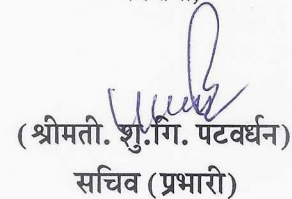 (श्रीमती. शु.गि. पटवर्धन)
सचिव (प्रभारी)